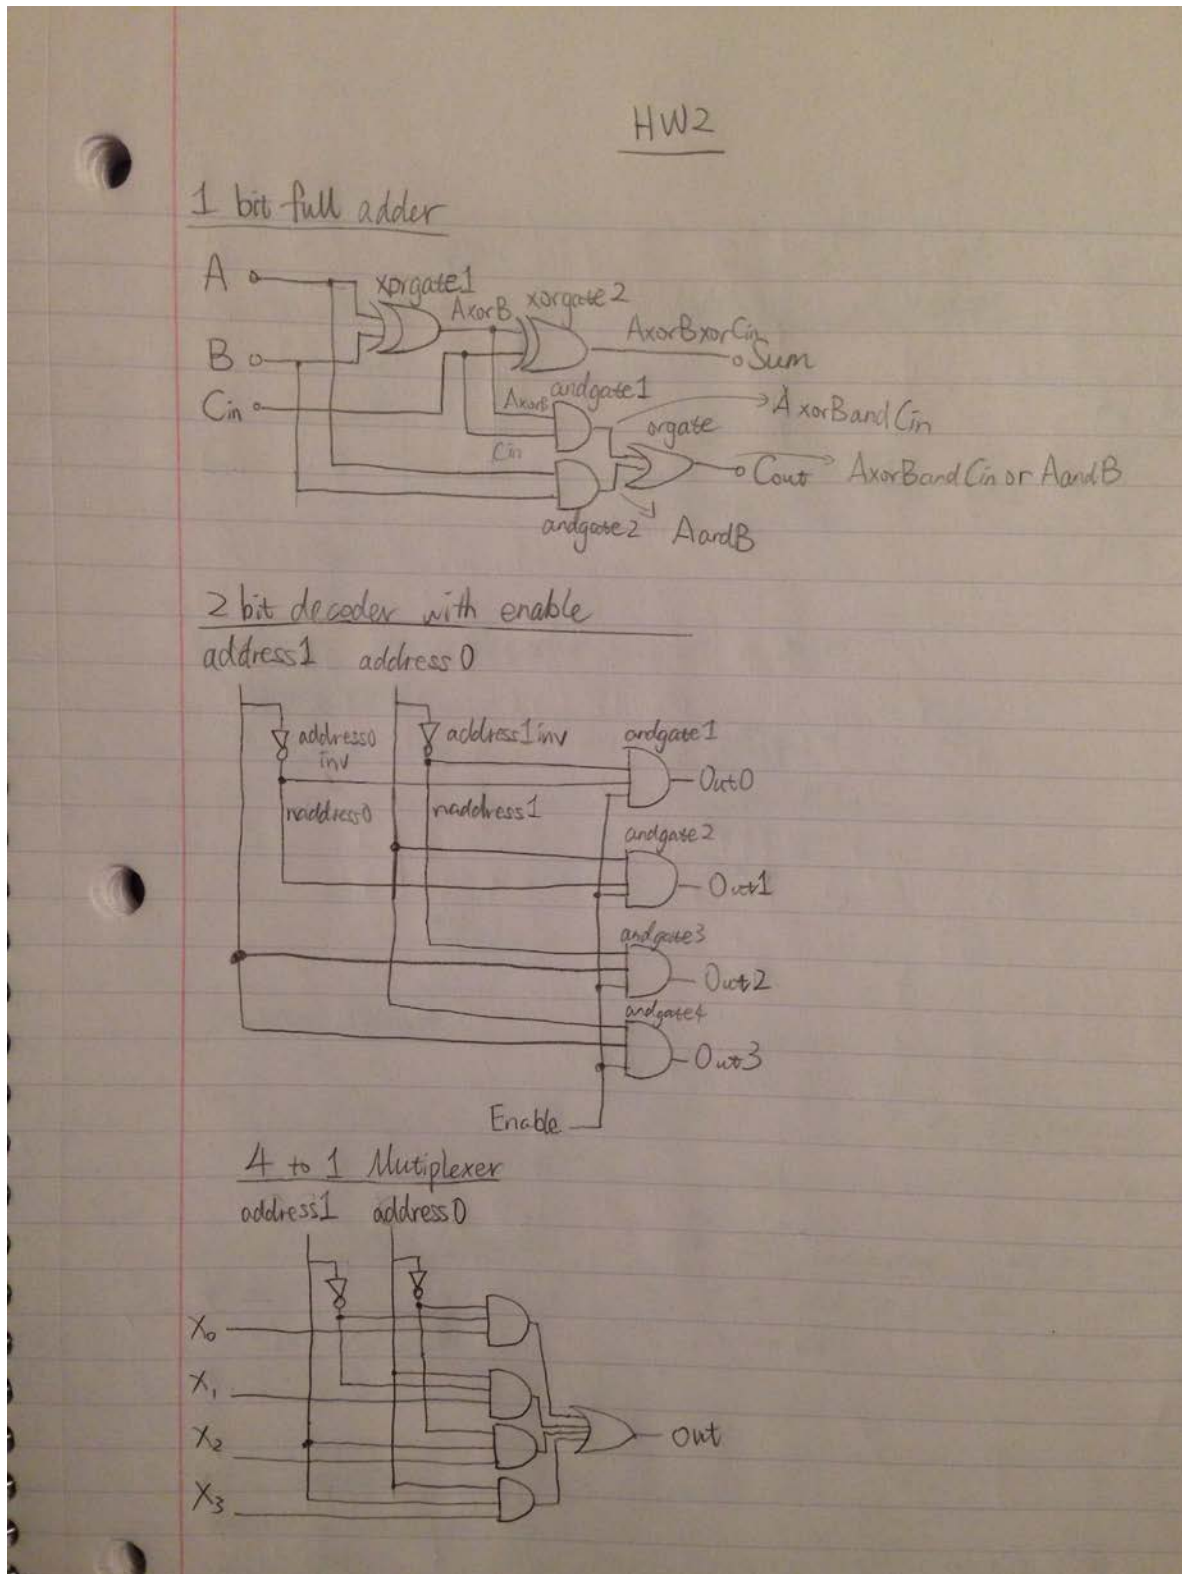 HW2
1 bit full adder
A xorgate1 AxorB xorgate2 AxorBxorCin
B Sum
Cin AxorB andgate1 orgate AxorBandCin
Cin Cout AxorBandCin or AandB
andgate2 AandB
2 bit decoder with enable
address1 address0
address0 address1inv andgate1
inv Out0
naddress0 naddress1
andgate2
Out1
andgate3
Out2
andgate4
Out3
Enable
4 to 1 Mutiplexer
address1 address0
X0
X1
X2 Out
X3